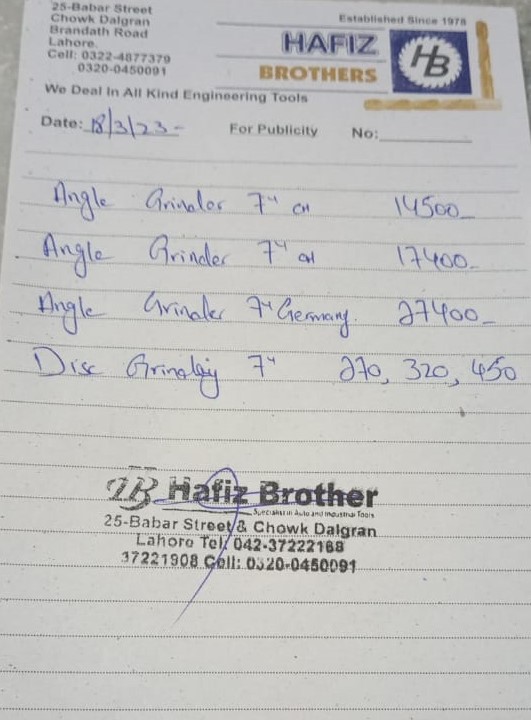 25-Babar Street
Chowk Dalgran
Brandath Road
Lahore.
Cell: 0322-4877379
0320-0450091
Established Since 1978
HAFIZ
BROTHERS
HB
We Deal In All Kind Engineering Tools
Date: 18/3/23-
For Publicity
No:
Angle Grinder 7" CH 14500-
Angle Grinder 7" CH 17400-
Angle Grinder 7" Germany. 27400-
Disc Grinding 7" 270, 320, 450
HB Hafiz Brother
Specialist in Auto and Industrial Tools
25-Babar Street & Chowk Dalgran
Lahore Tel: 042-37222168
37221908 Cell: 0320-0450091